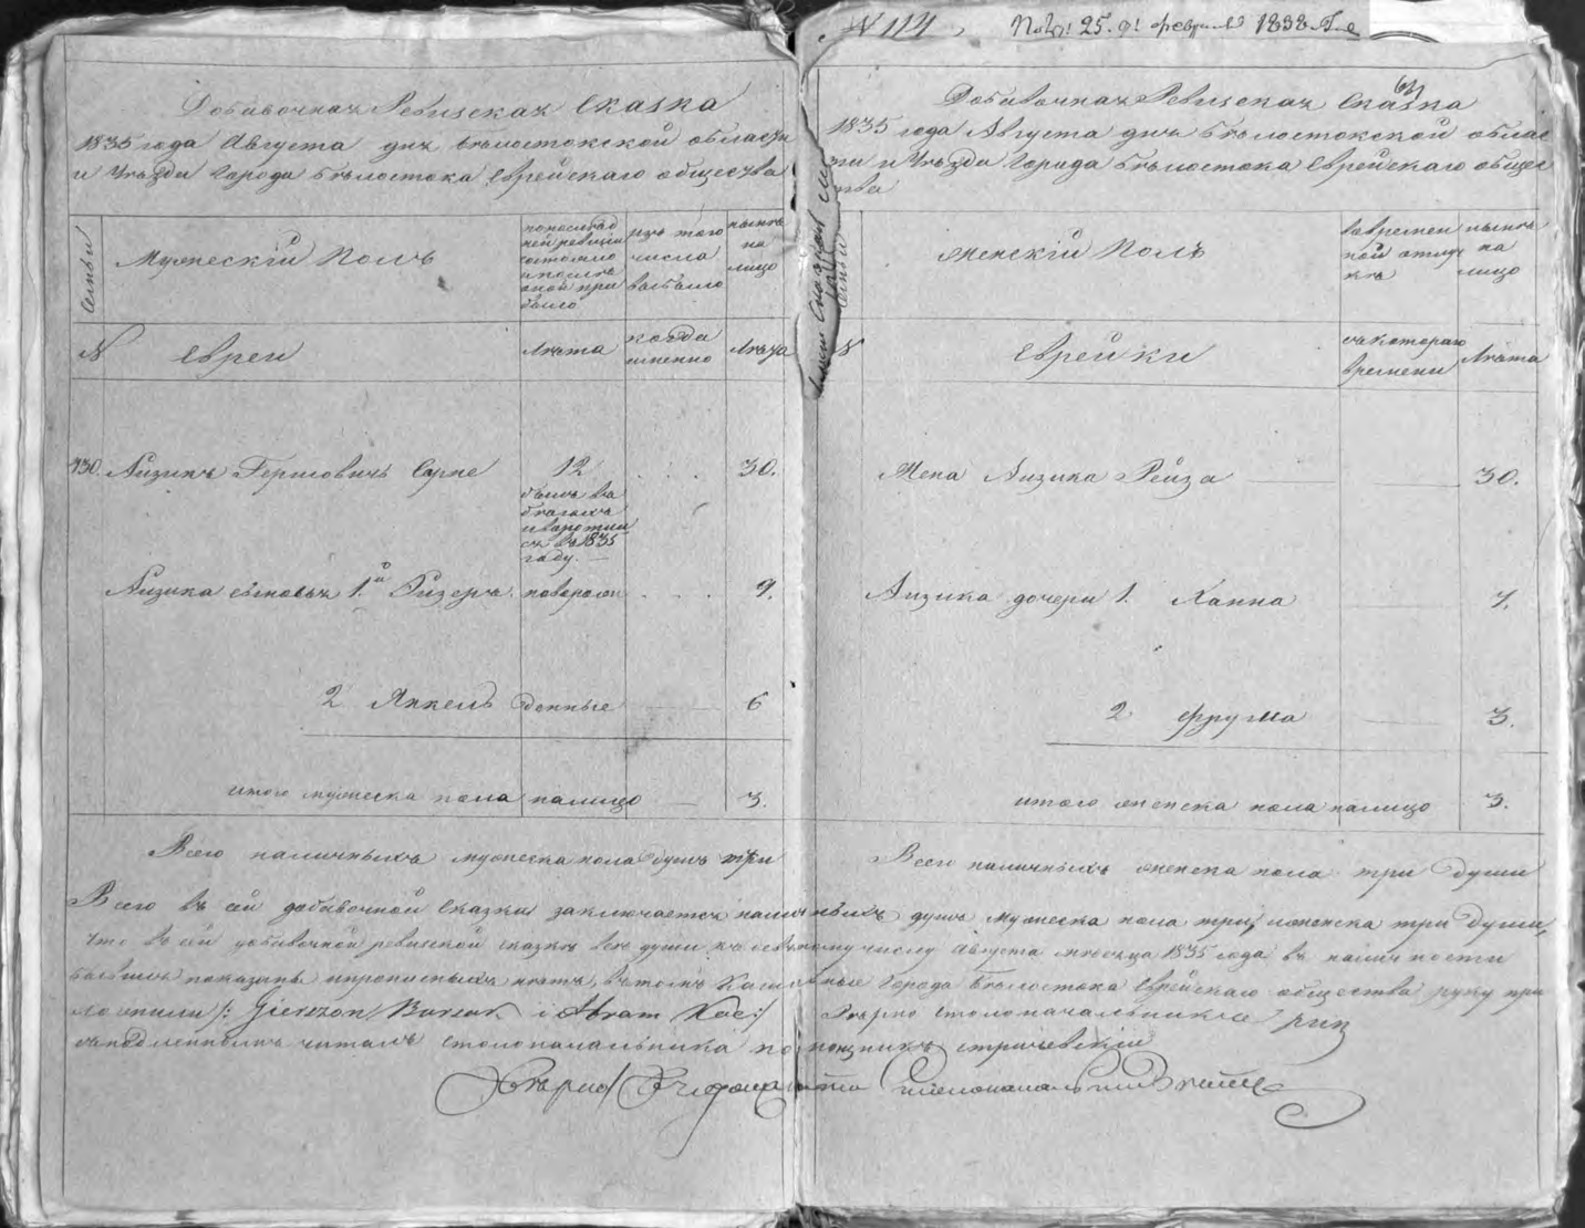 N 114
25. февраля 1838 Г
Добавочная Ревизская Сказка
1835 года Августа дня Бѣлостокской области
и Уѣзда Города Бѣлостока Еврейскаго общества
Семьи
Мужескій Полъ
по последней ревизіи состояло и после оной прибыло
изъ того числа выбыло
нынѣ на лицо
N
Евреи
Лѣта
когда именно
Лѣта
730. Айзикъ Гершовичъ Сарне 12 30.
былъ въ
бѣгахъ
и воротил
ся въ 1835
году.
Айзика сыновья 1.й Лизеръ 9.
2 Янкель 6
итого мужеска пола налицо 3.
Всего наличныхъ мужеска пола душъ три
Добавочная Ревизская Сказка
1835 года Августа дня Бѣлостокской облас
ти и Уѣзда Города Бѣлостока Еврейскаго общес
тва
Семьи
Женскій Полъ
во времен
ной отлуч
кѣ
нынѣ
на
лицо
N
Еврейки
съ котораго
времени
Лѣта
Жена Айзика Рейза 30.
Айзика дочери 1. Ханна 7.
2 Фрума 3.
итого женска пола налицо 3.
Всего наличныхъ женска пола три души
Всего въ сей добавочной Сказки заключается наличныхъ душъ мужеска пола три, женска три души,
что въ сей добавочной ревизской сказкѣ все души къ числу Августа месяца 1835 года въ наличности
показаны и прописныхъ нѣтъ, въ томъ Города Бѣлостока Еврейскаго общества руку при
ложили /: Gierszon Bursar i Abram Kac :/ Вѣрно Столоначальникъ
съ подлиннымъ читалъ столоначальника помощникъ
Вѣрно Столоначальникъ